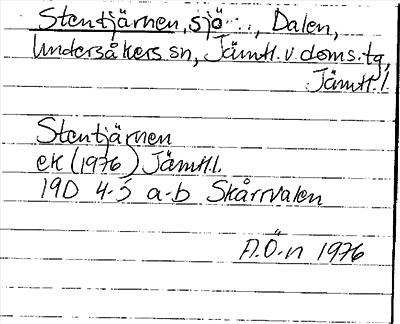 Stentjärnen, sjö , Dalen,
Undersåkers sn, Jämtl. v. doms. tg,
Jämtl. l.
Stentjärnen
ek (1976) Jämtl. l.
19D 4-5 a-b Skårrvalen
A.Ö-n 1976